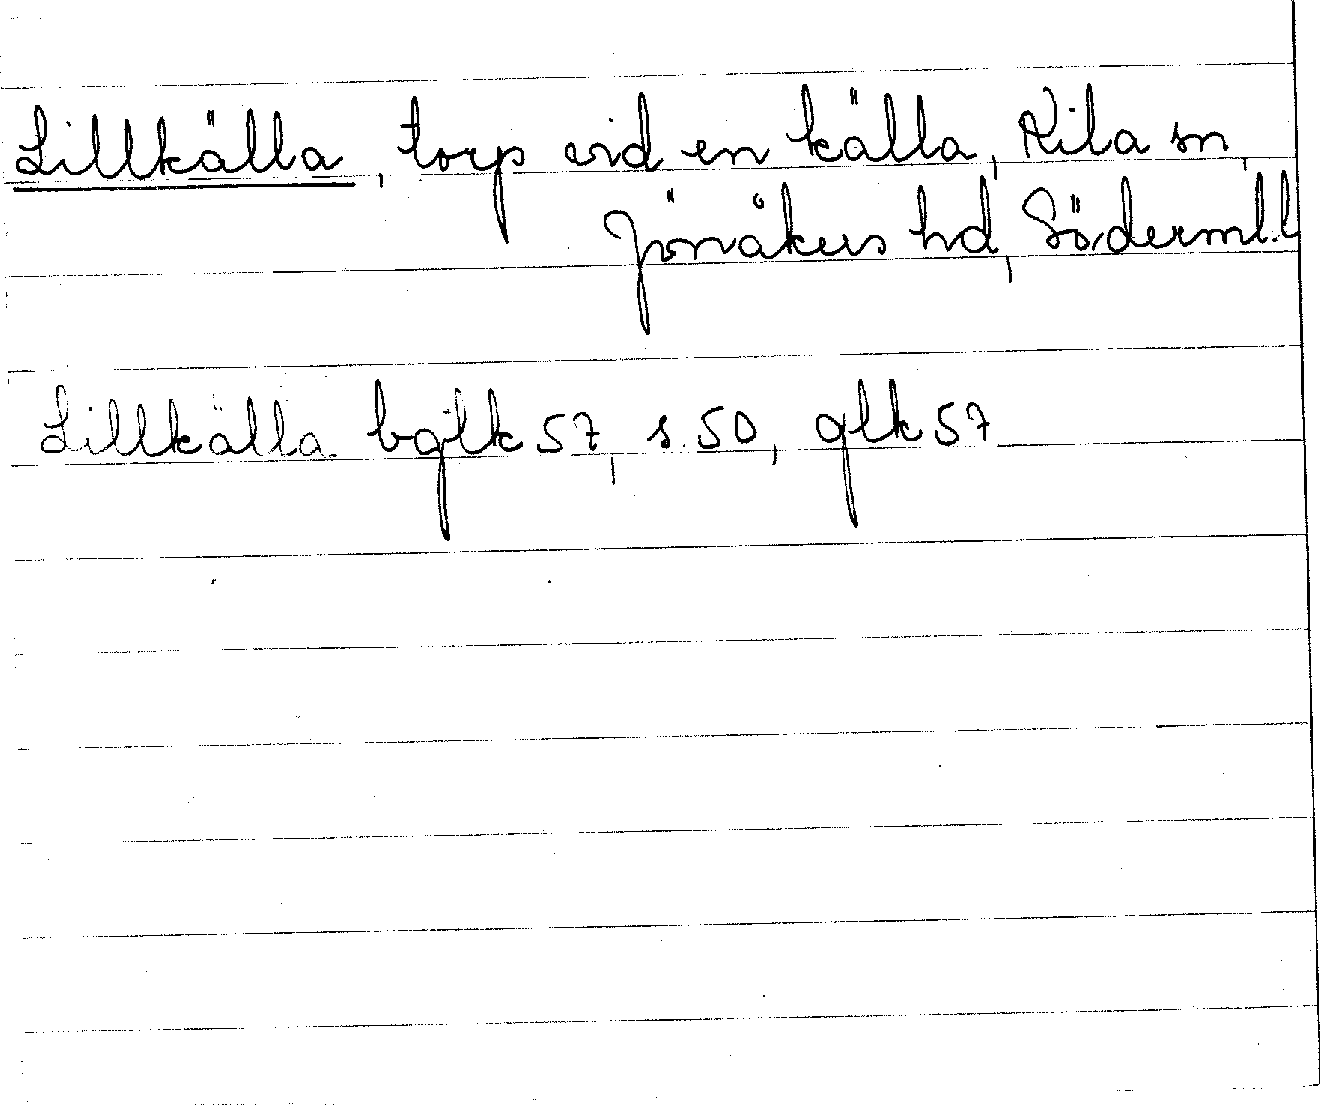 Lillkälla, torp vid en källa, Kila sn,
Jönåkers hd, Söderml. l
Lillkälla bglk 57, s. 50, glk 57